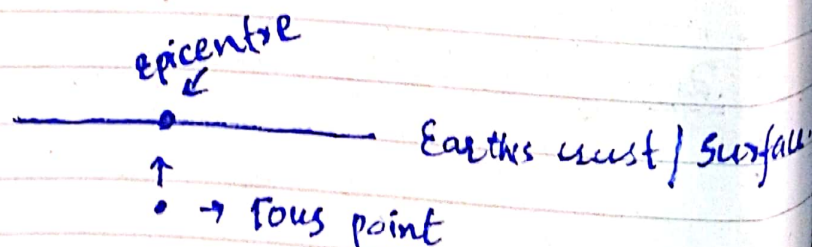 epicentre
Earthes crust / Surface
→ Focus point